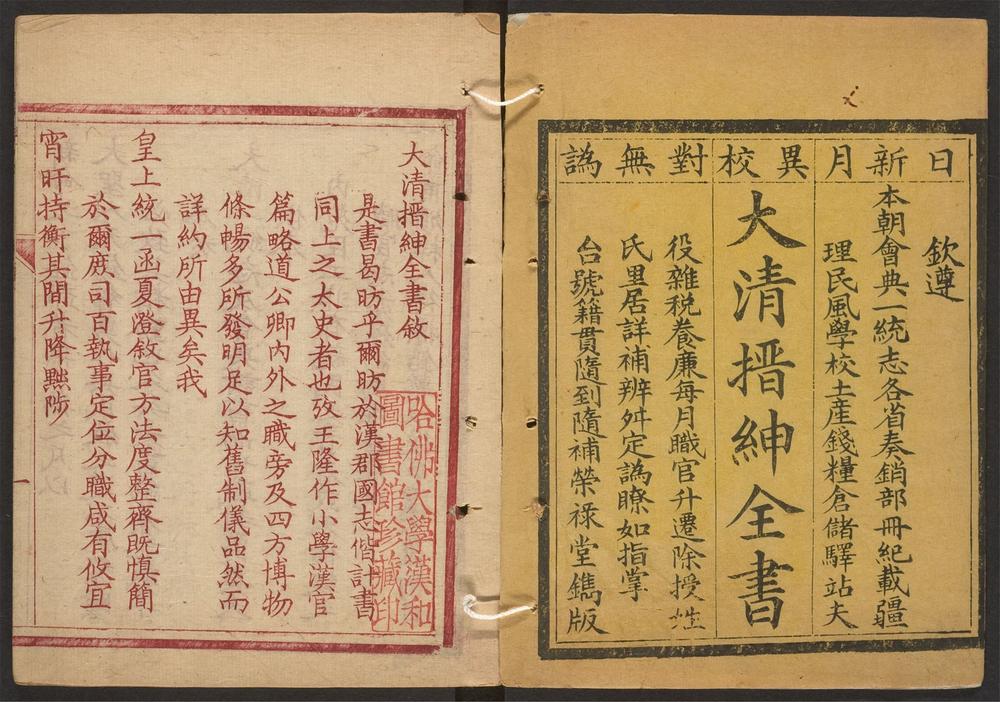 日新月異校對無譌
欽遵
本朝會典一統志各省奏銷部冊紀載疆
理民風學校土產錢糧倉儲驛站夫
大清搢紳全書
役雜稅養廉每月職官升遷除授姓
氏里居詳補辨舛定譌瞭如指掌
台號籍貫隨到隨補榮祿堂鐫版
大清搢紳全書敘
是書曷昉乎爾昉於漢郡國志偕計書
同上之太史者也攷王隆作小學漢官
篇略道公卿內外之職旁及四方博物
條暢多所發明足以知舊制儀品然而
詳約所由異矣我
皇上統一函夏澄敘官方法度整齊既慎簡
於爾庶司百執事定位分職咸有攸宜
宵旰持衡其間升降黜陟
哈佛大學漢和
圖書館珍藏印